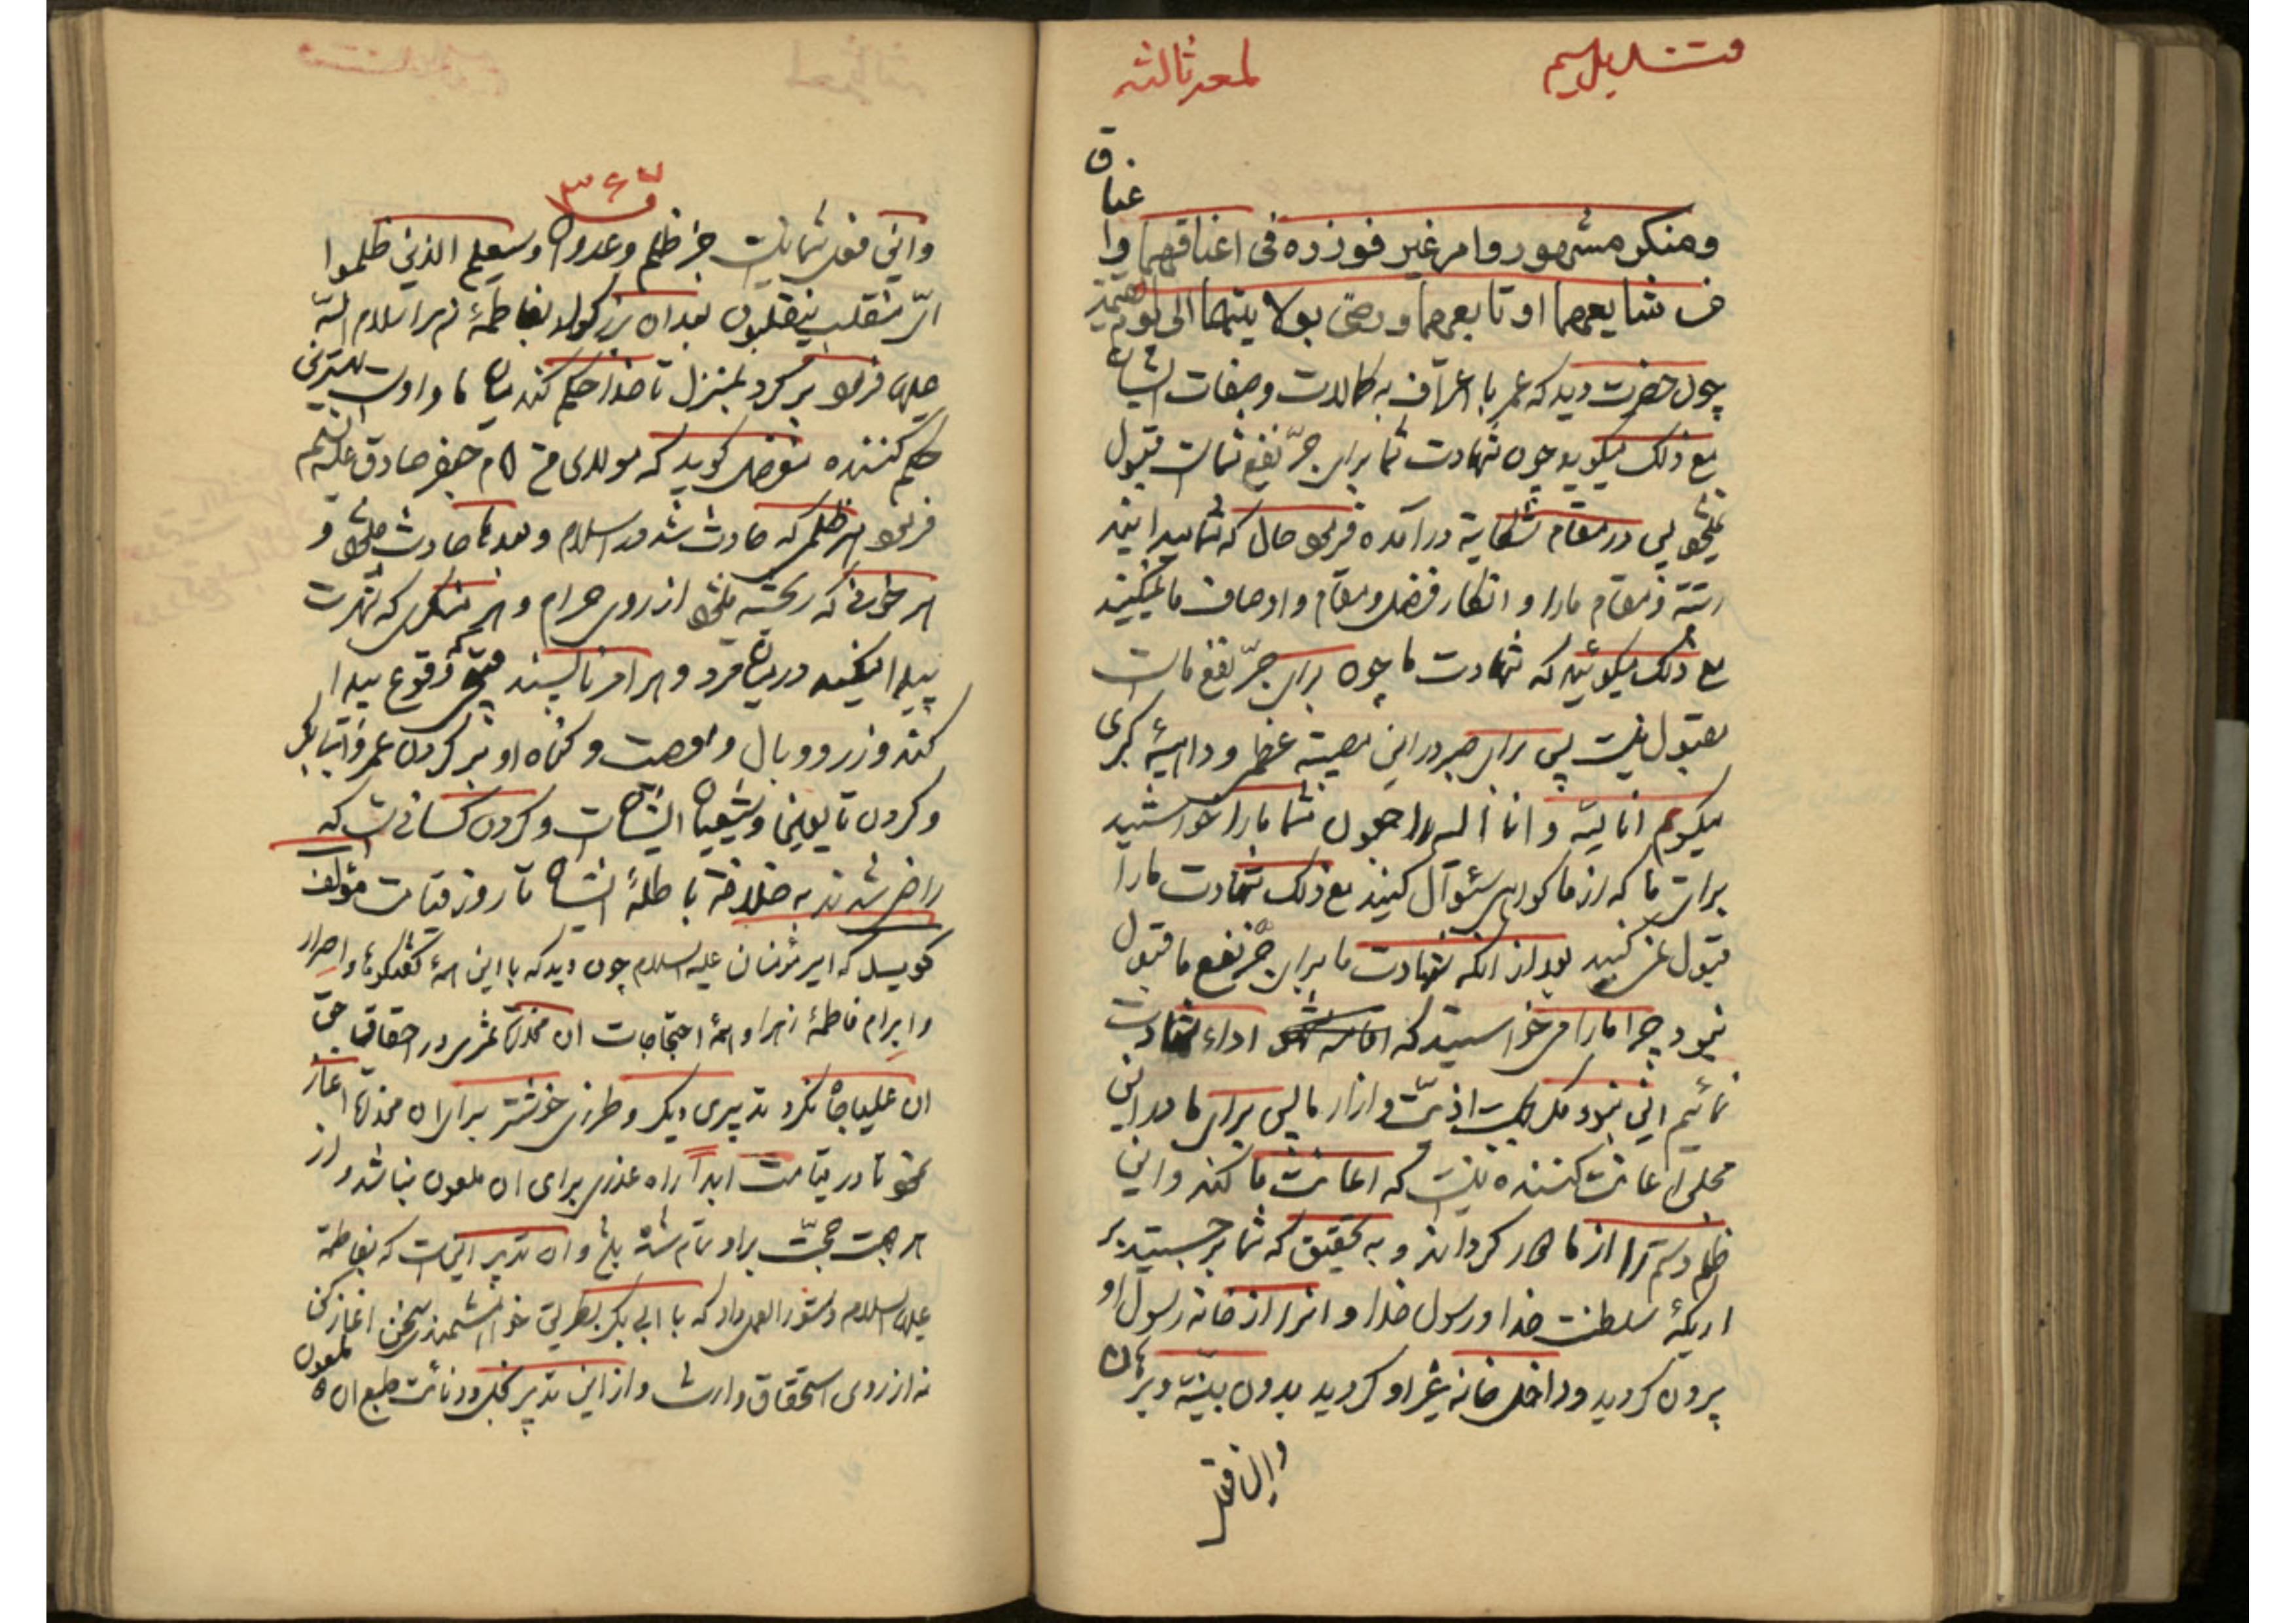 لمعه ثالثه
عناق
ومنکر مشهور وامر غیر فوزره فی اعناقهما وا
من شایعهما او تابعهما و رضی بولایتهما الی یوم
چون حضرت دید که عمر با اعتراف به کمالات وصفات ایشان
مع ذلک میگوید چون شهادت شما برای جرّ نفع شماست قبول
نمیشود پس در مقام شکایة درآمده فرمود حال که شما میدانید
رتبة و مقام مارا و انکار فضل و مقام و اوصاف ما نمیکنید
مع ذلک میگوئید که شهادت ما چون برای جرّ نفع ماست
مقبول نیست پس برای صبر در این مصیبة عظمی و داهیهٔ کبری
میگویم انا لله و انا الیه راجعون شما مارا خواستید
برای ما که از ما گواهی سئوال کنید مع ذلک شهادت مارا
قبول نمی کنید بعد از انکه شهادت ما برای جرّ نفع ما قبول
نبود چرا مارا می خواستید که اداء شهادت
نمائیم این نبود مگر بجهت اذیّت و ازار ما پس برای ما در این
مجلس اعانت کننده نیست که اعانت ما کند و این
ظلم و ستم را از ما دور گرداند و به تحقیق که شما برجستید بر
اریکهٔ سلطنت خدا و رسول خدا و انرا از خانه رسول او
بیرون کردید و داخل خانه غیر او کردید بدون بیّنة و برهان
و این قدر
۳۶۷
و این فعل شما نیست جز ظلم و عدوان و سیعلم الذین ظلموا
ایّ منقلب ینقلبون بعد ان بزرگوار بفاطمهٔ زهرا سلام الله
علیها فرمود برگرد بمنزل تا خدا حکم کند میان ما و اوست بهترین
حکم کننده مفضل گوید که مولای من امام جعفر صادق علیه السلم
فرمود هر ظلمی که حادث شد در اسلام و بعدها حادث میشود و
هر خونی که ریخته میشود از روی حرام و هر منکری که شهرت
پیدا میکند در میان مردم و هر امر ناپسند و قبیحی که وقوع پیدا
کند وزر و وبال و معصیت و گناه او بر گردن عمر و اتباع
و گردن تابعین و شیعیان ایشانست و گردن کسانی است که
راضی شدند به خلافة باطلهٔ ایشان تا روز قیامت مؤلف
گوید که امیر مؤمنان علیه السلام چون دید که با این همهٔ گفتگوها و اصرار
و ابرام فاطمهٔ زهرا و همهٔ احتجاجات ان مخدره ثمری در احقاق حق
ان علیاجاه نکرد تدبیری دیگر و طرزی خوشتر برای ان مخدره اغاز
نمود تا در قیامت ابداً راه عذری برای ان ملعون نباشد و از
هر جهت حجّت بر او تمام شده باشد و ان تدبیر اینست که بفاطمة
علیها السلام دستور العمل داد که با ابی بکر بطریق خواهشمندی سخن اغاز کن
نه از روی استحقاق و ارث و از این تدبیر بخل و دنائت طبع ان ملعون